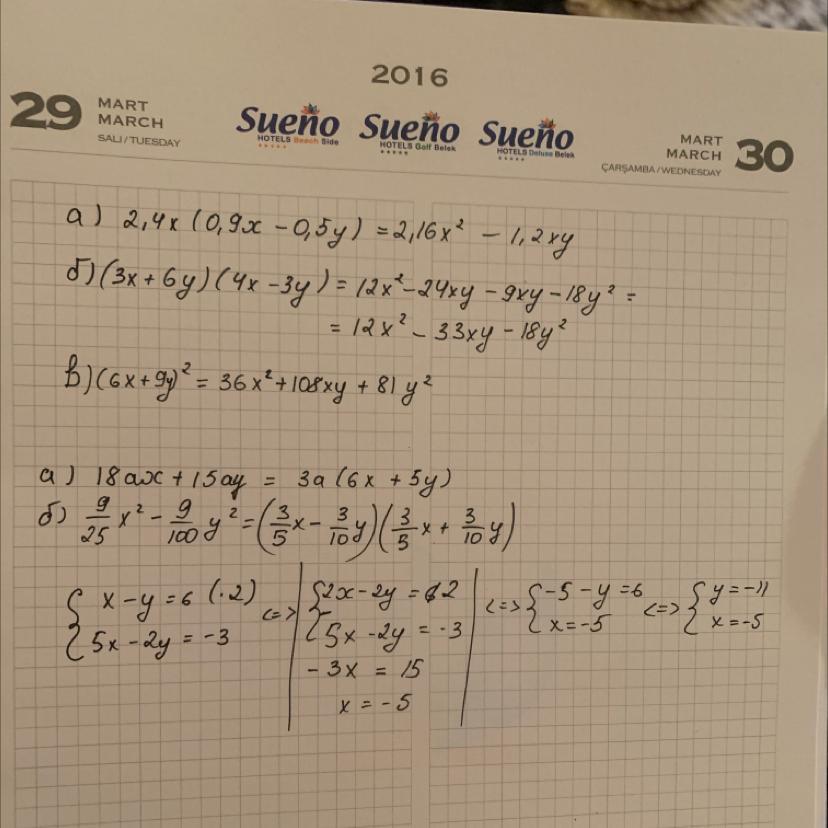 2016
29 MART MARCH SALI/TUESDAY
Sueño HOTELS Beach Side
Sueño HOTELS Golf Belek
Sueño HOTELS Deluxe Belek
MART MARCH ÇARŞAMBA/WEDNESDAY 30
а) 2,4x(0,9x - 0,5y) = 2,16x² - 1,2xy
б) (3x + 6y)(4x - 3y) = 12x² - 24xy - 9xy - 18y² =
= 12x² - 33xy - 18y²
в) (6x + 9y)² = 36x² + 108xy + 81y²
а) 18ax + 15ay = 3a(6x + 5y)
б) 9/25 x² - 9/100 y² = (3/5 x - 3/10 y)(3/5 x + 3/10 y)
{ x - y = 6 (·2) <=> | { 2x - 2y = 12 | <=> { -5 - y = 6 <=> { y = -11
5x - 2y = -3 | 5x - 2y = -3 | x = -5 x = -5
-3x = 15
x = -5